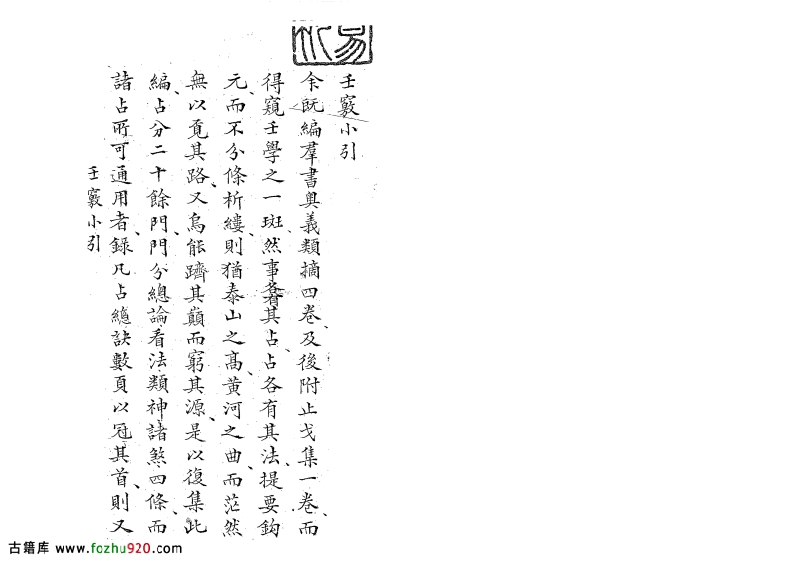 壬竅小引
余既編羣書奥義類摘四卷、及後附止戈集一卷、而
得窺壬學之一斑、然事各有其占、占各有其法、提要鈎
元、而不分條析縷、則猶泰山之高、黄河之曲、而茫然
無以覓其路、又烏能躋其巔而窮其源、是以復集此
編、占分二十餘門、門分總論看法類神諸煞四條、而
諸占所可通用者、録凡占總訣數頁以冠其首、則又
壬竅小引
古籍库 www.fozhu920.com